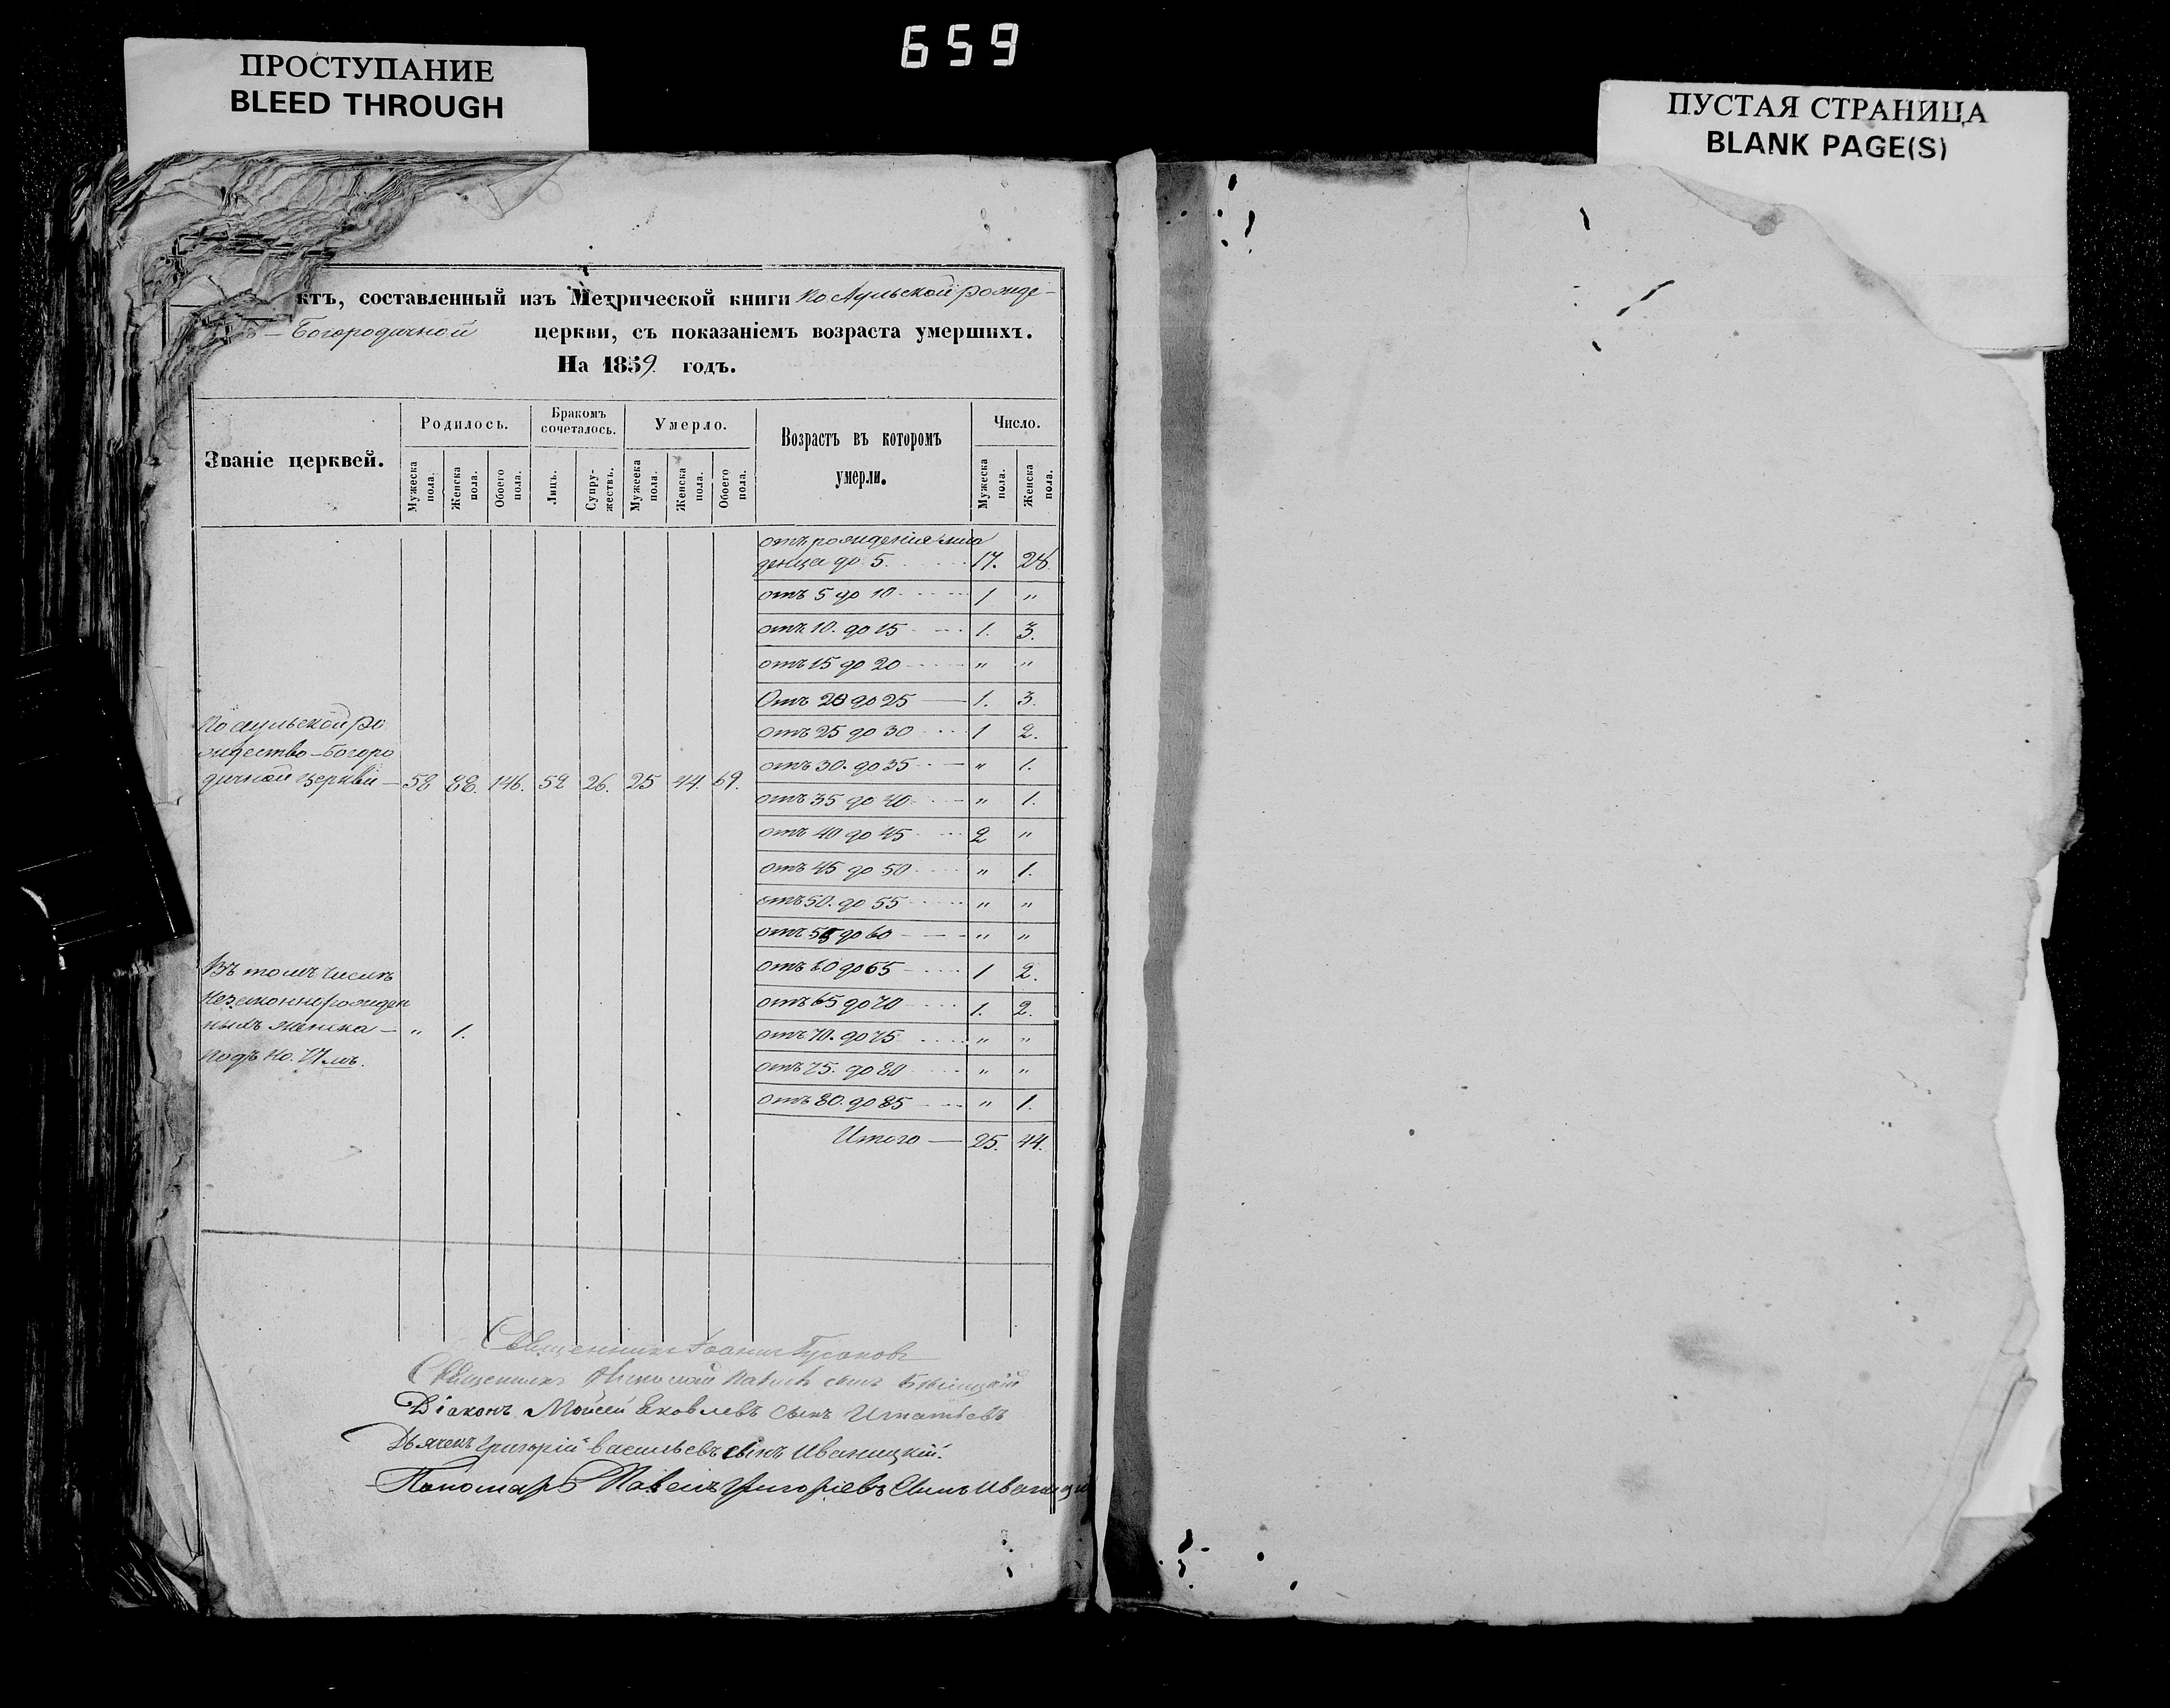 659
ПРОСТУПАНИЕ
BLEED THROUGH
ПУСТАЯ СТРАНИЦА
BLANK PAGE(S)
ктъ, составленный изъ Метрической книги по Аульской рожде-
Богородичной церкви, съ показаніемъ возраста умершихъ.
На 1859 годъ.
Званіе церквей.
Родилось.
Бракомъ сочеталось.
Умерло.
Возрастъ въ которомъ умерли.
Число.
Мужеска пола.
Женска пола.
Обоего пола.
Лицъ.
Супружествъ.
Мужеска пола.
Женска пола.
Обоего пола.
Мужеска пола.
Женска пола.
отъ рожденія мла
денца до 5. 17. 28.
отъ 5 до 10 1 "
отъ 10. до 15 1. 3.
отъ 15 до 20 " "
Отъ 20 до 25 1. 3.
отъ 25 до 30 1 2.
отъ 30. до 35 " 1.
отъ 35 до 40 " 1.
отъ 40 до 45 2 "
отъ 45 до 50 " 1.
отъ 50. до 55 " "
отъ 55 до 60 " "
отъ 60 до 65 1 2.
отъ 65 до 70 1. 2.
отъ 70. до 75 " "
отъ 75. до 80 " "
отъ 80. до 85 " 1.
Итого — 25. 44.
По аульской ро
ждество-Богоро
дичной церкви — 58 88. 146. 52 26. 25 44. 69.
Въ томъ числѣ
незаконнорожден
ныхъ женска — " 1.
подъ No.
Священникъ Іоаннъ Гусаковъ
Священникъ сынъ
Діаконъ Моисей Яковлевъ сынъ Игнатьевъ
Дьячекъ Григорій Васильевъ сынъ Иваницкій.
Пономарь Павелъ Григорьевъ Сынъ Иваницкій